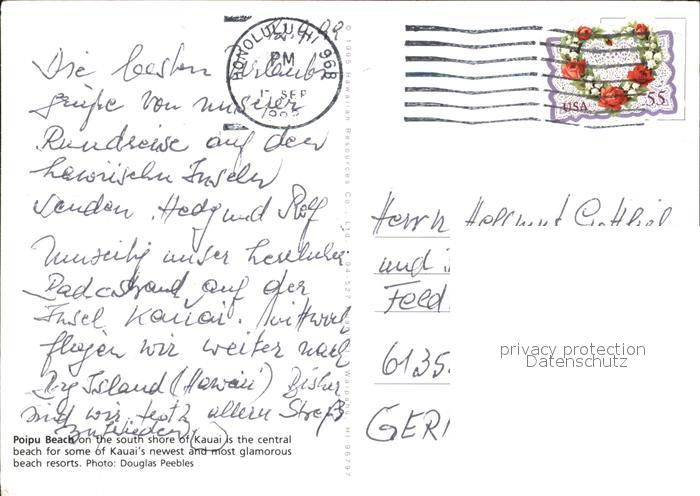 12.9.99
Die besten Urlaubs
grüße von unserer
Rundreise auf den
hawaiischen Inseln
senden Hedy und Rolf
Umseitig unser herrlicher
Badestrand auf der
Insel Kauai. Mittwoch
fliegen wir weiter nach
Big Island (Hawaii) Bisher
sind wir trotz allem Streß
zufrieden
Poipu Beach on the south shore of Kauai is the central
beach for some of Kauai's newest and most glamorous
beach resorts. Photo: Douglas Peebles
HONOLULU HI 968
PM
SEP
© 1995 Hawaiian Resources Co., Ltd.
HI 96797
USA 55
Herrn Hellmut Gottlieb
und
Feld
6135
GER
privacy protection
Datenschutz